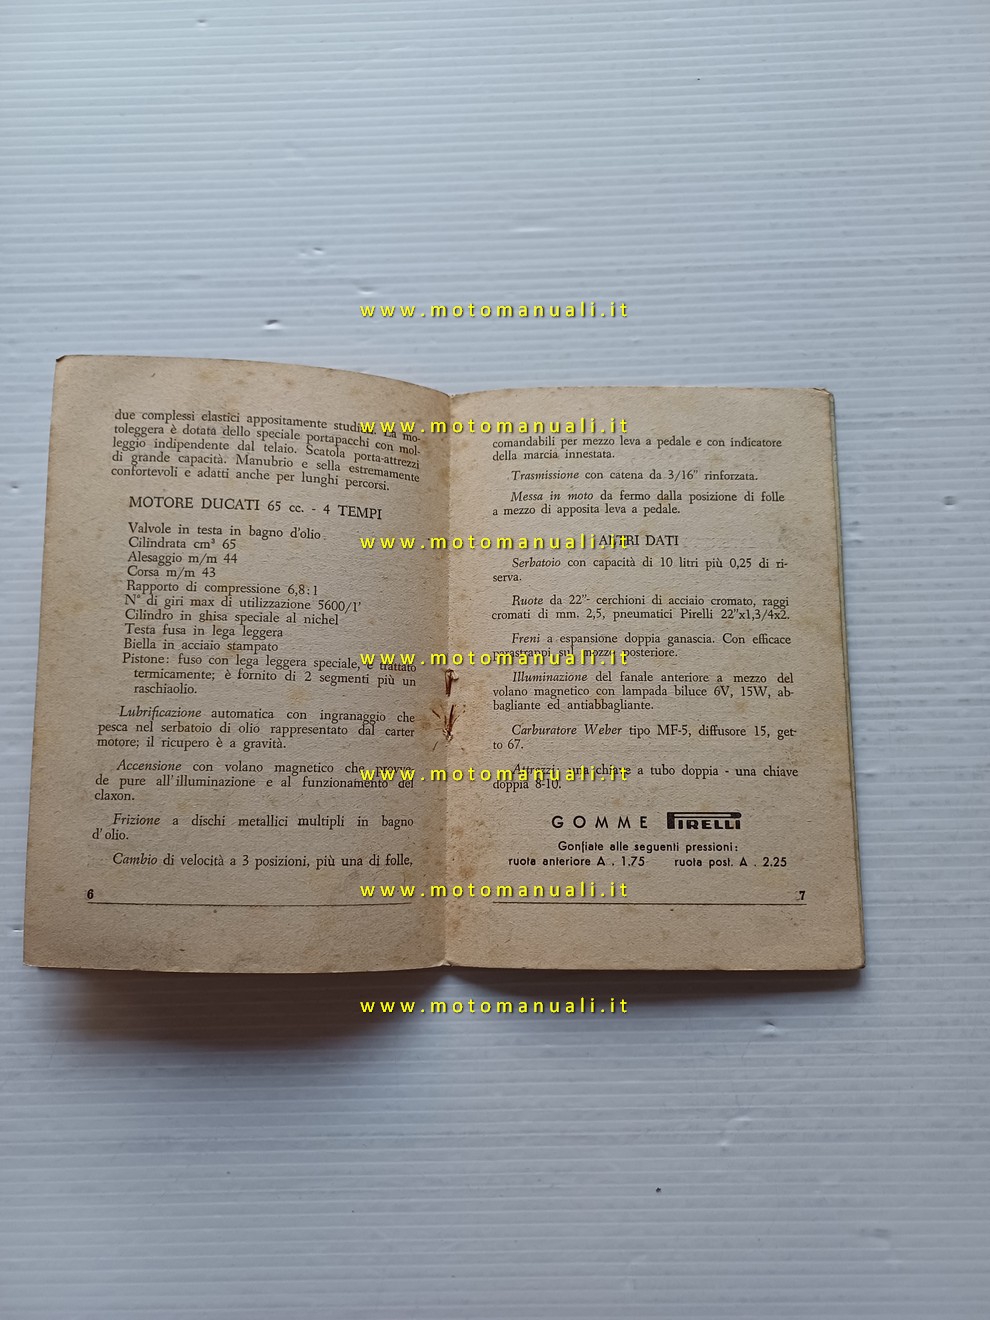 www.motomanuali.it
due complessi elastici appositamente studiati. La mo-
toleggera è dotata dello speciale portapacchi con mol-
leggio indipendente dal telaio. Scatola porta-attrezzi
di grande capacità. Manubrio e sella estremamente
confortevoli e adatti anche per lunghi percorsi.
MOTORE DUCATI 65 cc. - 4 TEMPI
Valvole in testa in bagno d'olio
Cilindrata cm³ 65
Alesaggio m/m 44
Corsa m/m 43
Rapporto di compressione 6,8:1
N° di giri max di utilizzazione 5600/1'
Cilindro in ghisa speciale al nichel
Testa fusa in lega leggera
Biella in acciaio stampato
Pistone: fuso con lega leggera speciale, è trattato
termicamente; è fornito di 2 segmenti più un
raschiaolio.
Lubrificazione automatica con ingranaggio che
pesca nel serbatoio di olio rappresentato dal carter
motore; il ricupero è a gravità.
Accensione con volano magnetico che provve-
de pure all'illuminazione e al funzionamento del
claxon.
Frizione a dischi metallici multipli in bagno
d'olio.
Cambio di velocità a 3 posizioni, più una di folle,
6
comandabili per mezzo leva a pedale e con indicatore
della marcia innestata.
Trasmissione con catena da 3/16" rinforzata.
Messa in moto da fermo dalla posizione di folle
a mezzo di apposita leva a pedale.
ALTRI DATI
Serbatoio con capacità di 10 litri più 0,25 di ri-
serva.
Ruote da 22"- cerchioni di acciaio cromato, raggi
cromati di mm. 2,5, pneumatici Pirelli 22"x1,3/4x2.
Freni a espansione doppia ganascia. Con efficace
parastrappi sul mozzo posteriore.
Illuminazione del fanale anteriore a mezzo del
volano magnetico con lampada biluce 6V, 15W, ab-
bagliante ed antiabbagliante.
Carburatore Weber tipo MF-5, diffusore 15, get-
to 67.
Attrezzi: una chiave a tubo doppia - una chiave
doppia 8-10.
GOMME PIRELLI
Gonfiate alle seguenti pressioni:
ruota anteriore A . 1.75 ruota post. A . 2.25
7
www.motomanuali.it
www.motomanuali.it
www.motomanuali.it
www.motomanuali.it
www.motomanuali.it
www.motomanuali.it